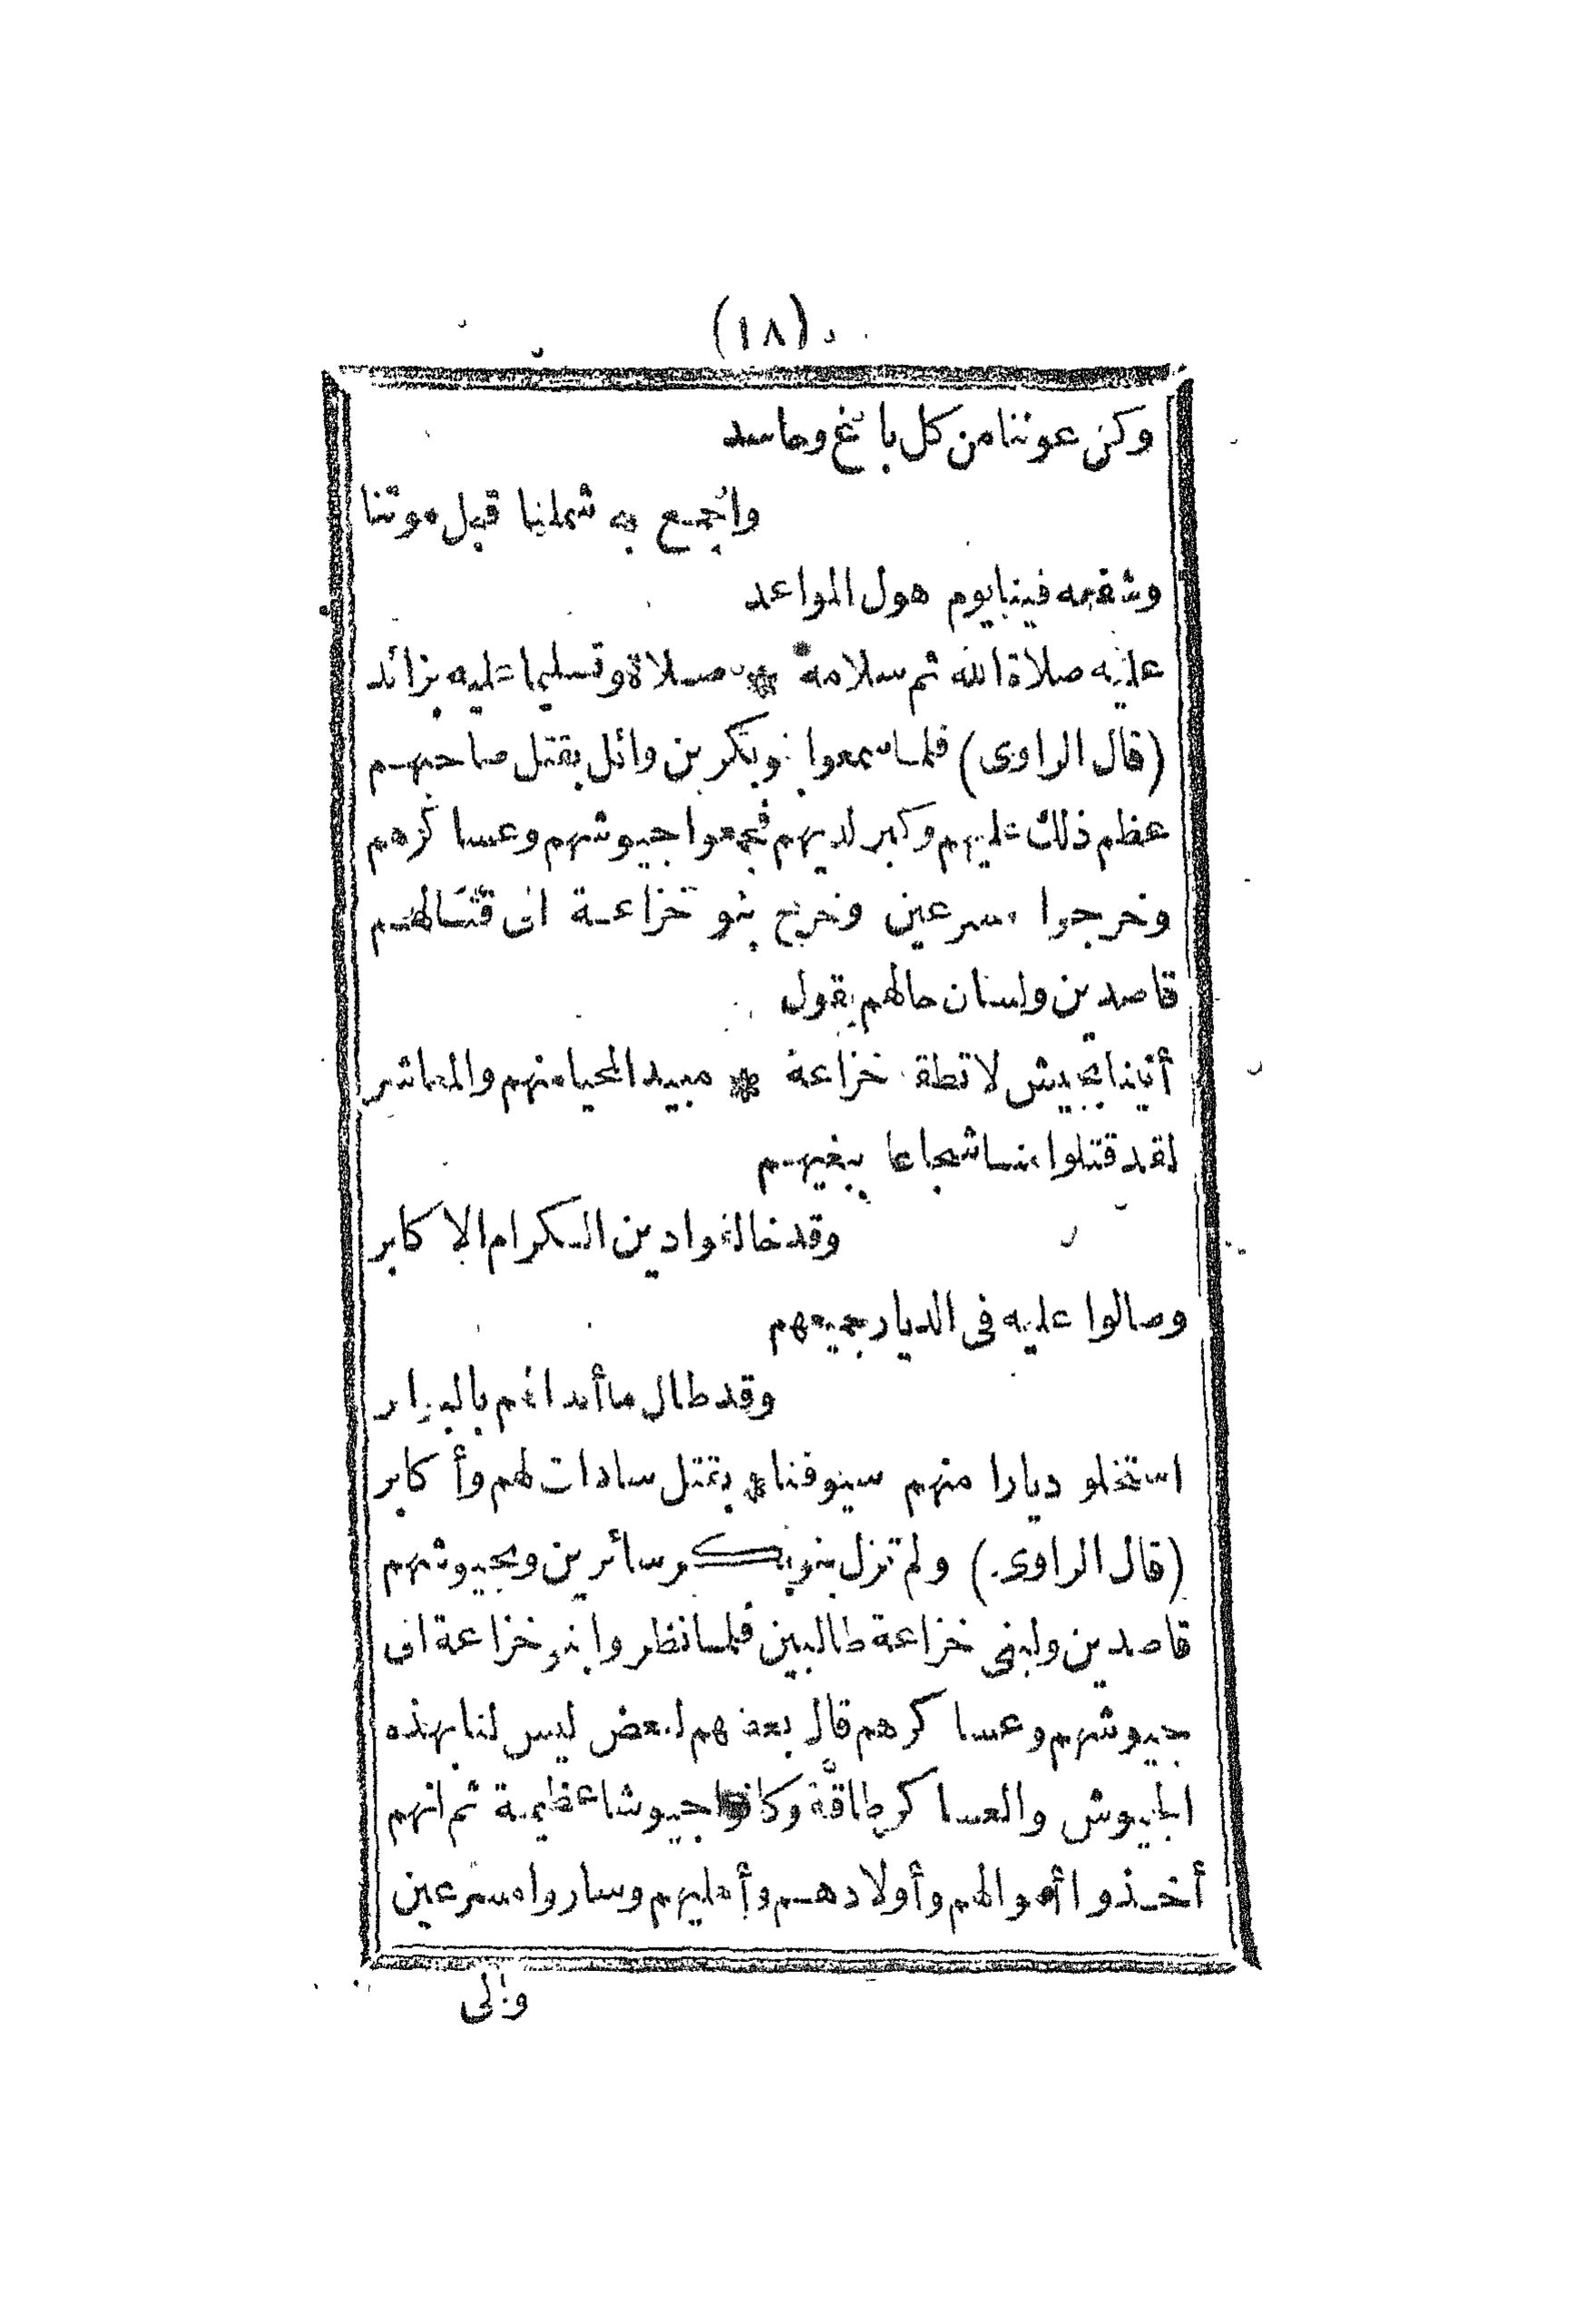 (١٨)
وكن عوننا من كل باغ وحاسد
واجمع به شملنا قبل موتنا
وشفعه فينا يوم هول المواعد
عليه صلاة الله ثم سلامه * صلاة وتسليما عليه بزائد
(قال الراوى) فلما سمعوا بنو بكر بن وائل بقتل صاحبهم
عظم ذلك عليهم وكبر لديهم فجمعوا جيوشهم وعساكرهم
وخرجوا مسرعين وخرج بنو خزاعة الى قتالهم
قاصدين ولسان حالهم يقول
أتينا بجيش لا تطقه خزاعة * مبيد المحيا منهم والمعاشر
لقد قتلوا منا شجاعا ببغيهم
وقد خالفوا دين الكرام الاكابر
وصالوا عليه فى الديار جميعهم
وقد طال ما أبداهم بالبزار
استخلو ديارا منهم سيوفنا * بقتل سادات لهم وأكابر
(قال الراوى) ولم تزل بنو بكر سائرين وبجيوشهم
قاصدين ولبنى خزاعة طالبين فلما نظروا بنو خزاعة الى
جيوشهم وعساكرهم قال بعضهم لبعض ليس لنا بهذه
الجيوش والعساكر طاقة وكانوا جيوشا عظيمة ثم انهم
أخذوا أموالهم وأولادهم وأهليهم وساروا مسرعين
والى